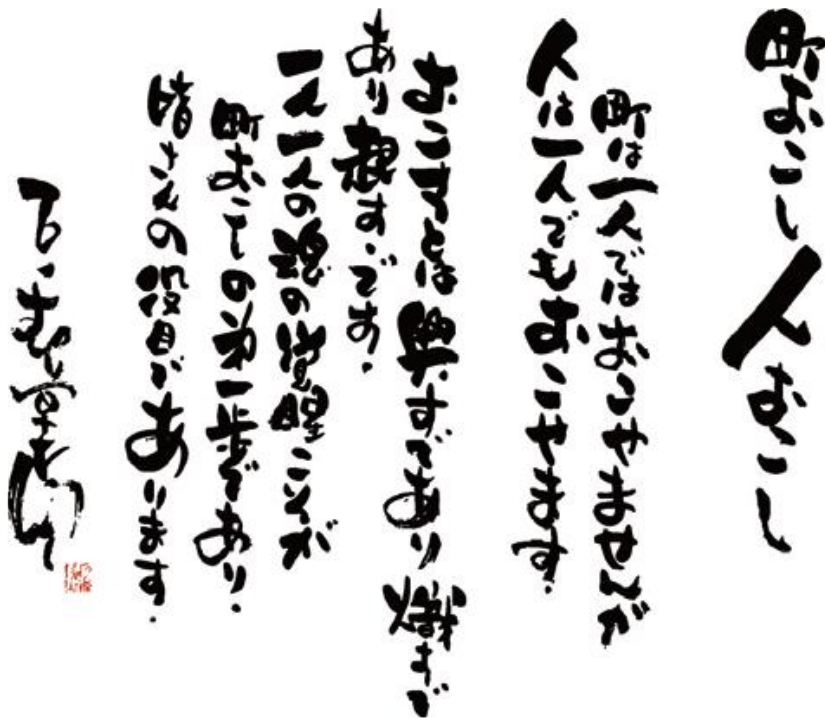 町おこし人おこし
町は一人ではおこせませんが
人は一人でもおこせます.
おこすとは興すであり熾すで
あり起す.です.
一人一人の魂の覚醒こそが
町おこしの第一歩であり.
皆さんの役目であります.